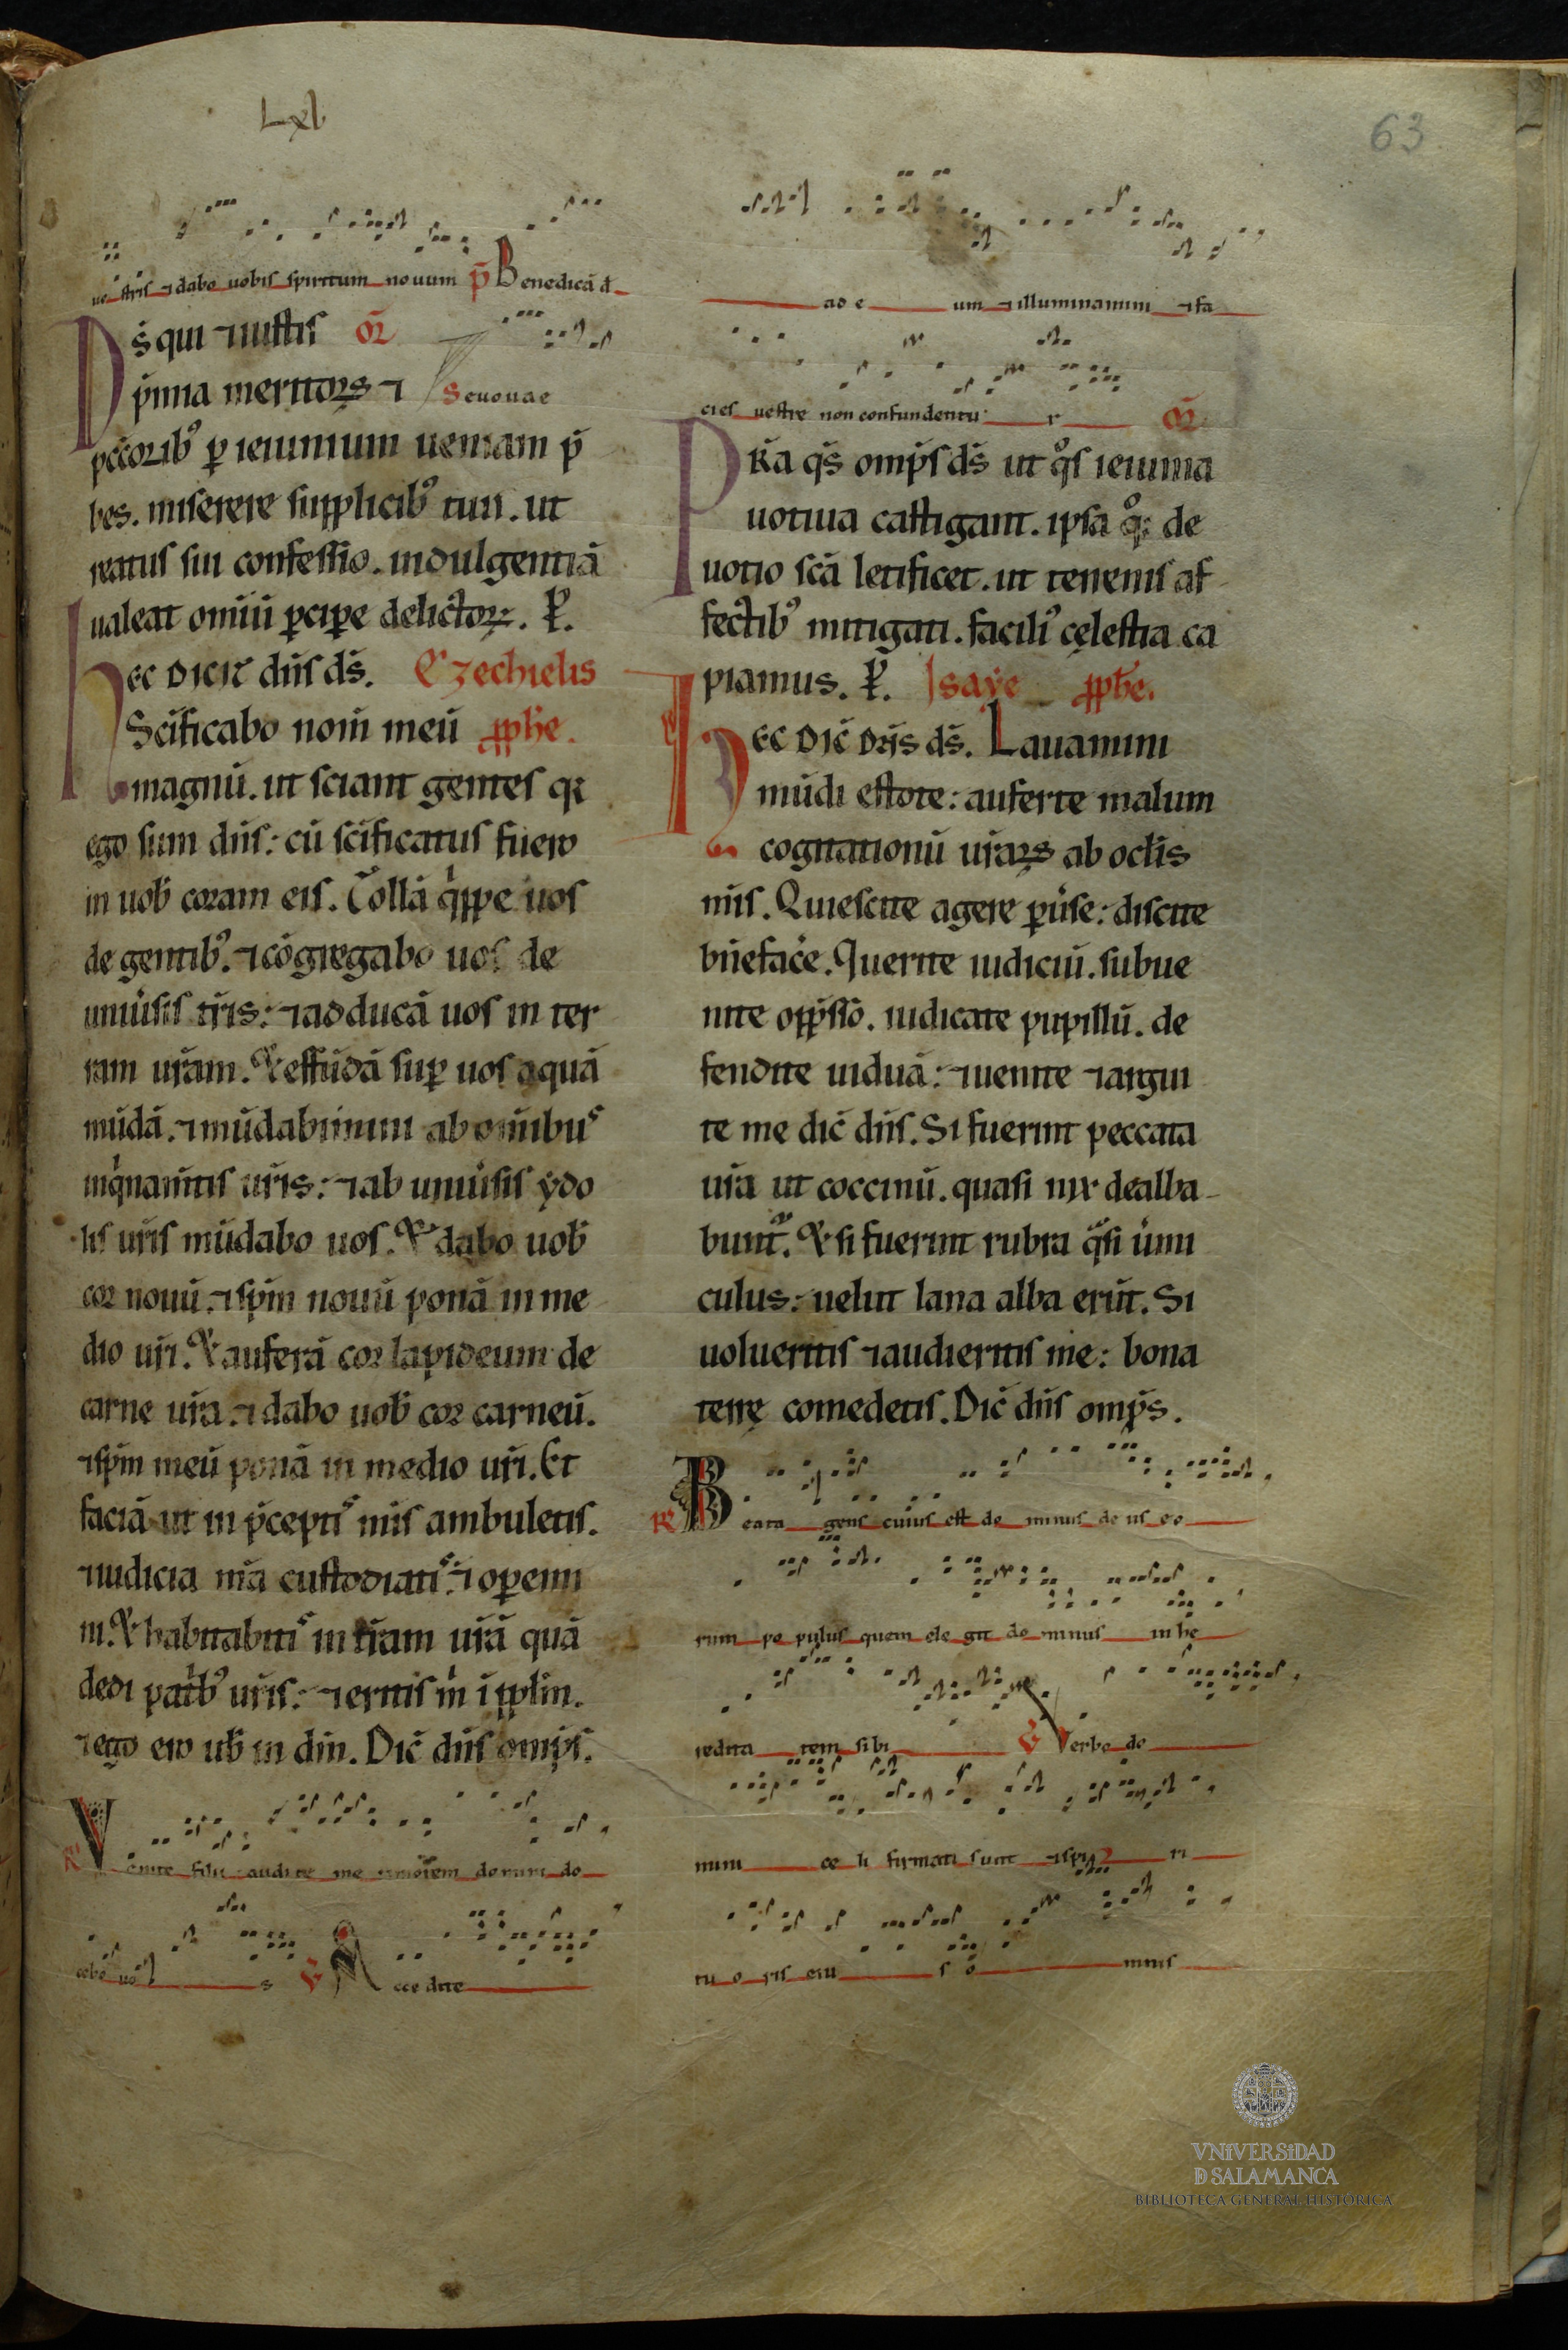 Lxl
63
uestris ⁊ dabo uobis spiritum nouum p̄ Benedicā d̄
Ds̄ qui ⁊ iustis or̄
p̄mia meritoꝝ ⁊ Seuouae
pccōrib᷒ ꝑ ieiunium ueniam p̄
bes. miserere supplicib᷒ tuis. ut
reatus sui confessio. indulgentiā
ualeat omiū ꝑciꝑe delictoꝝ. ꝑ.
Hec dicit dn̄s ds̄. Ezechielis
Scīficabo nom̄ meū ꝓphe.
magnū. ut sciant gentes qꝛ
ego sum dn̄s: cū scīficatus fuero
in uob̄ coram eis. Tollā q̇ppe uos
de gentib᷒. ⁊ cōgregabo uos de
uniūsis tr̄is: ⁊ adducā uos in ter
ram ur̄am. Et effūdā suꝑ uos aquā
mūdā. ⁊ mūdabimini ab om̄ibus
inq̇namtīs ur̄is: ⁊ ab uniūsis ydo
lis ur̄is mūdabo uos. Et dabo uob̄
cor nouū. ⁊ spm̄ nouū ponā in me
dio ur̄i. Et auferā cor lapideum de
carne ur̄a. ⁊ dabo uob̄ cor carneū.
⁊ spm̄ meū ponā in medio ur̄i. Et
faciā ut in p̄ceptis mīs ambuletis.
⁊ iudicia m̄a custodiatis. ⁊ oꝑemi
ni. Et habitabitis in tr̄am ur̄ā quā
dedi patrib᷒ ur̄is: ⁊ eritis m̄ i pplm̄.
⁊ ego ero ub̄ in dm̄. Dic̄ dn̄s omp̄s.
R̄ Venite filii audite me timorem domini do
cebo uos ℣ Accedite
ad eum ⁊ illuminamini ⁊ fa
cies uestre non confundentur or̄
Pr̄a qs̄ omp̄s ds̄ ut qo̊s ieiunia
uotiua castigant. ipsa qo̊ꝫ de
uotio scā letificet. ut terrenis af
fectib᷒ mitigati. facili᷒ cęlestia ca
piamus. ꝑ. Isaye ꝓphe.
Hec dic̄ dn̄s ds̄. Lauamini
mūdi estote: auferte malum
cogitationū ur̄aꝝ ab oclīs
mīs. Quiescite agere ꝑūse: discite
bn̄eface̍. Querite iudiciū. subue
nite opp̄ssō. iudicate pupillū. de
fendite uiduā: ⁊ uenite ⁊ argui
te me dic̄ dn̄s. Si fuerint peccata
ur̄a ut coccinū. quasi nix dealba
bunt᷑. Et si fuerint rubra qͣsi u̇mi
culus: uelut lana alba erūt. Si
uolueritis ⁊ audieritis me: bona
terrę comedetis. Dic̄ dn̄s omp̄s.
R̄ Beata gens cuius est dominus deus eo
rum populus quem elegit dominus in he
reditatem sibi ℣ Verbo do
mini celi firmati sunt ⁊ spiri
tu oris eius omnis
VNiVERSiDAD
D SALAMANCA
BIBLIOTECA GENERAL HISTÓRICA